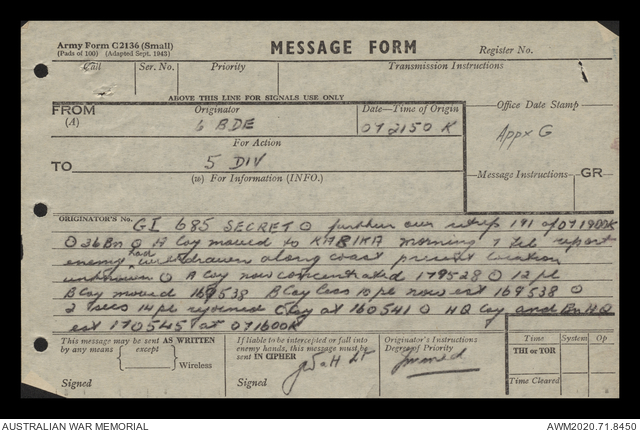 Army Form C2136 (Small)
(Pads of 100) (Adapted Sept. 1943)
MESSAGE FORM
Register No.
Call Ser. No. Priority Transmission Instructions
ABOVE THIS LINE FOR SIGNALS USE ONLY
FROM Originator Date—Time of Origin Office Date Stamp
(A) 6 BDE 072150 K
Appx G
For Action
TO 5 DIV
(W) For Information (INFO.) Message Instructions GR
ORIGINATOR'S No. GI 685 SECRET O further our 191 of 071900K
O 36 Bn O A Coy moved to KABIKA morning 7 Feb report
enemy had withdrawn along coast present location
unknown O A Coy now concentrated 179528 O 12 pl
B Coy moved 169538 B Coy less 10 pl now est 169538 O
2 secs 14 pl rejoined C Coy at 160541 O HQ Coy and Bn HQ
est 170545 at 071600K
This message may be sent AS WRITTEN
by any means { except }
Wireless
Signed
If liable to be intercepted or fall into
enemy hands, this message must be
sent IN CIPHER
Signed
Originator's Instructions
Degree of Priority
Time System Op
THI or TOR
Time Cleared
AUSTRALIAN WAR MEMORIAL AWM2020.71.8450